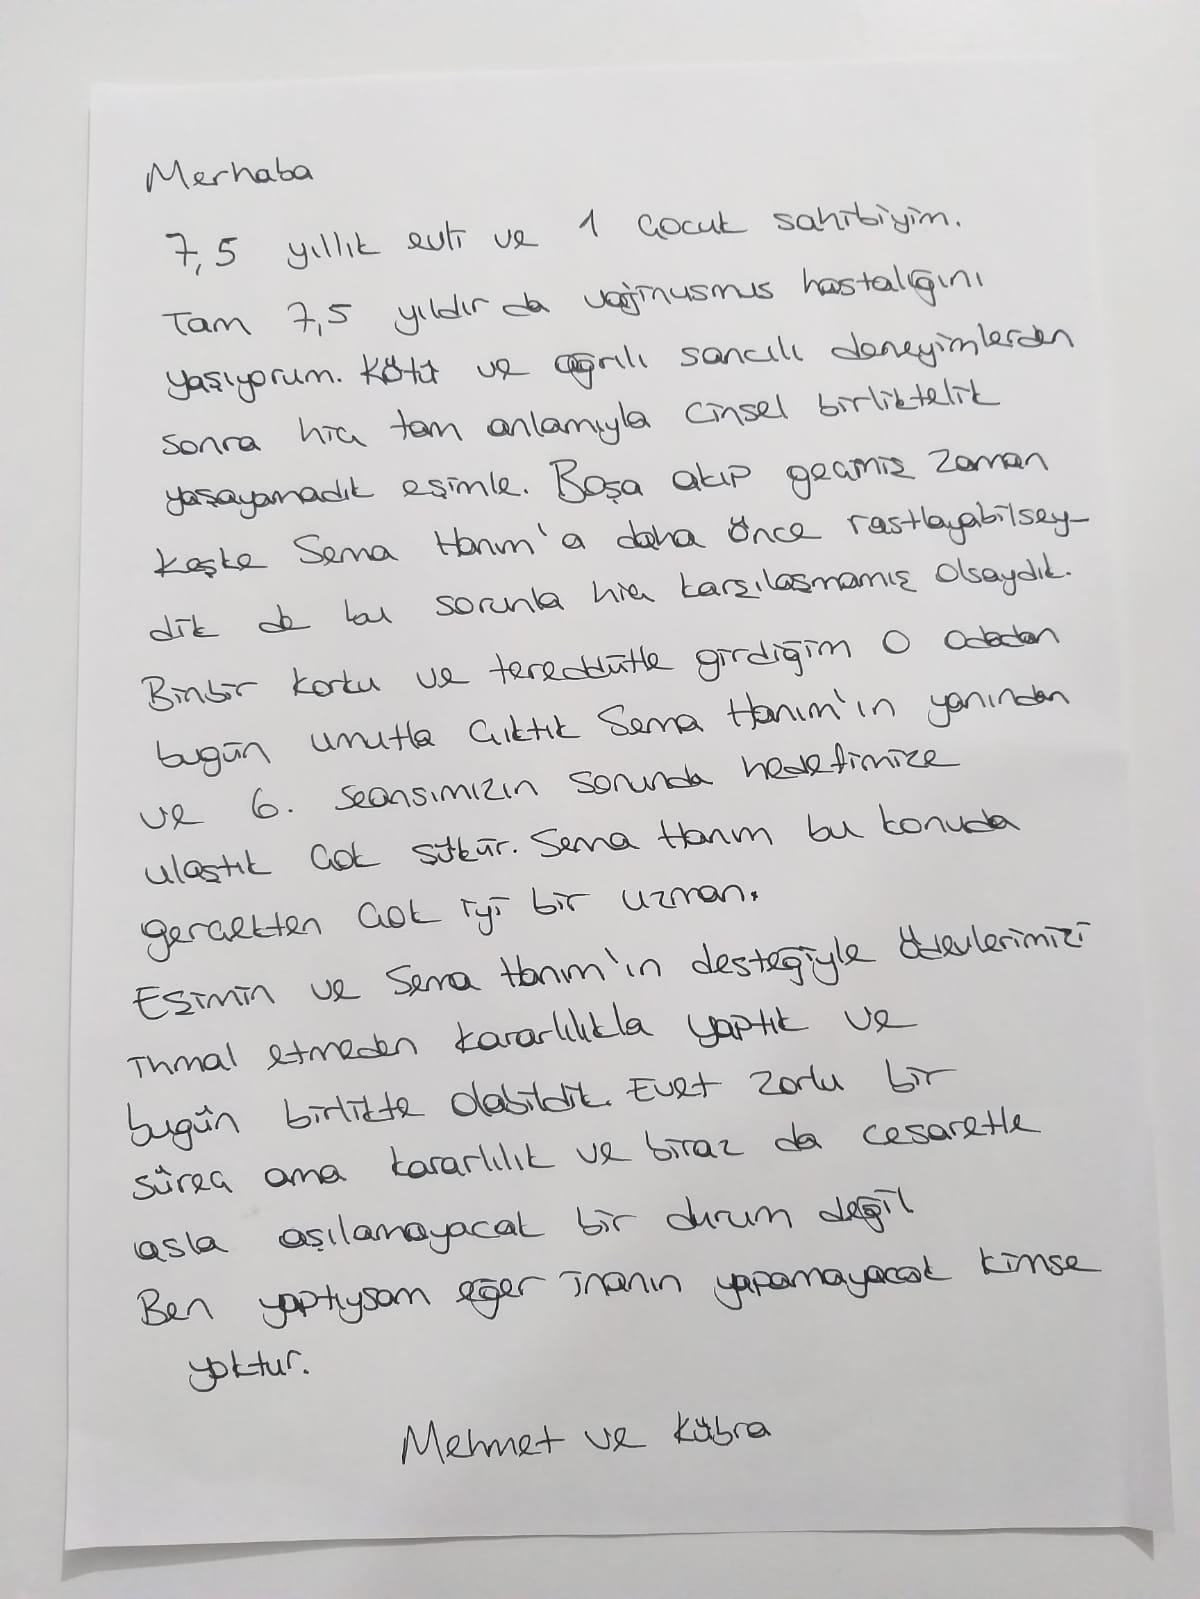 Merhaba
7,5 yıllık evli ve 1 çocuk sahibiyim.
Tam 7,5 yıldır da vajinusmus hastalığını
yaşıyorum. Kötü ve ağrılı sancılı deneyimlerden
sonra hiç tam anlamıyla cinsel birliktelik
yaşayamadık eşimle. Boşa akıp geçmiş zaman
keşke Sema Hanım'a daha önce rastlayabilsey-
dik de bu sorunla hiç karşılaşmamış olsaydık.
Binbir korku ve tereddütle girdiğim o odadan
bugün umutla çıktık Sema Hanım'ın yanından
ve 6. seansımızın sonunda hedefimize
ulaştık çok şükür. Sema Hanım bu konuda
gerçekten çok iyi bir uzman.
Eşimin ve Sema Hanım'ın desteğiyle ödevlerimizi
ihmal etmeden kararlılıkla yaptık ve
bugün birlikte olabildik. Evet zorlu bir
süreç ama kararlılık ve biraz da cesaretle
asla aşılamayacak bir durum değil
Ben yaptıysam eğer inanın yapamayacak kimse
yoktur.
Mehmet ve Kübra